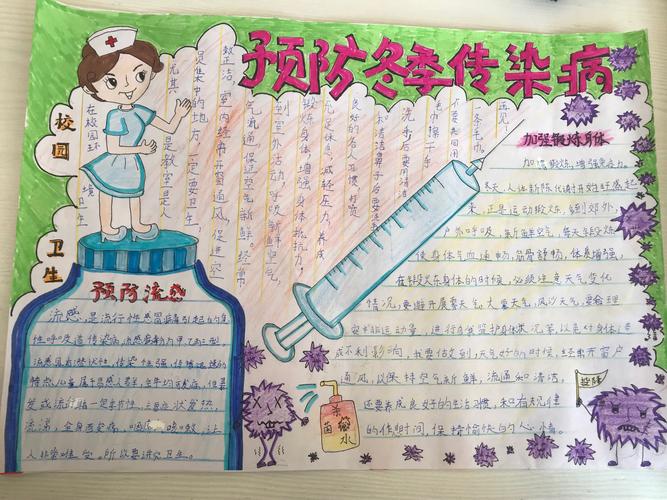 预防冬季传染病
校园卫生
在校园环境卫生
尤其是教室是人
员集中的地方一定要卫生
整洁,室内经常开窗通风,促进空
气流通,保证空气新鲜。经常
到室外活动,呼吸新鲜空气,
锻炼身体,增强身体抵抗力,
充足休息,减轻压力,养成
良好的个人习惯,打喷
后要用清洁
洗手后要用清洁
毛巾擦干手
不要共同用
一条毛巾。
加强锻炼身体
加强锻炼,增强免疫力。
冬天,人体新陈代谢开始旺盛起
来,正是运动锻炼,到郊外,
户外呼吸,新鲜空气,每天锻炼
使身体气血通畅,筋骨舒畅,体质增强,
在锻炼身体的时候,必须注意天气变化
情况,要避开雾天气,大雾天气,风沙天气,要合理
安排运动量,进行自我监护身体状况等,以免对身体造
成不利影响,我要做到,天气好的时候,经常开窗户
通风,以保持空气新鲜,流通和清洁,
还要养成良好的生活习惯,和有规律
的作息时间,保持愉快的心情。
预防流感
流感,是流行性感冒病毒引起的急
性呼吸道传染病,流感病毒分为甲、乙、丙三型
流感具有潜伏性,传染性强,传播迅速的
特点,人普属于易感人群,全年均可发病,但暴
发或流行
流涕,全身酸痛,咽痛,咳嗽,让
人非常难受。所以要讲究卫生。
杀菌水